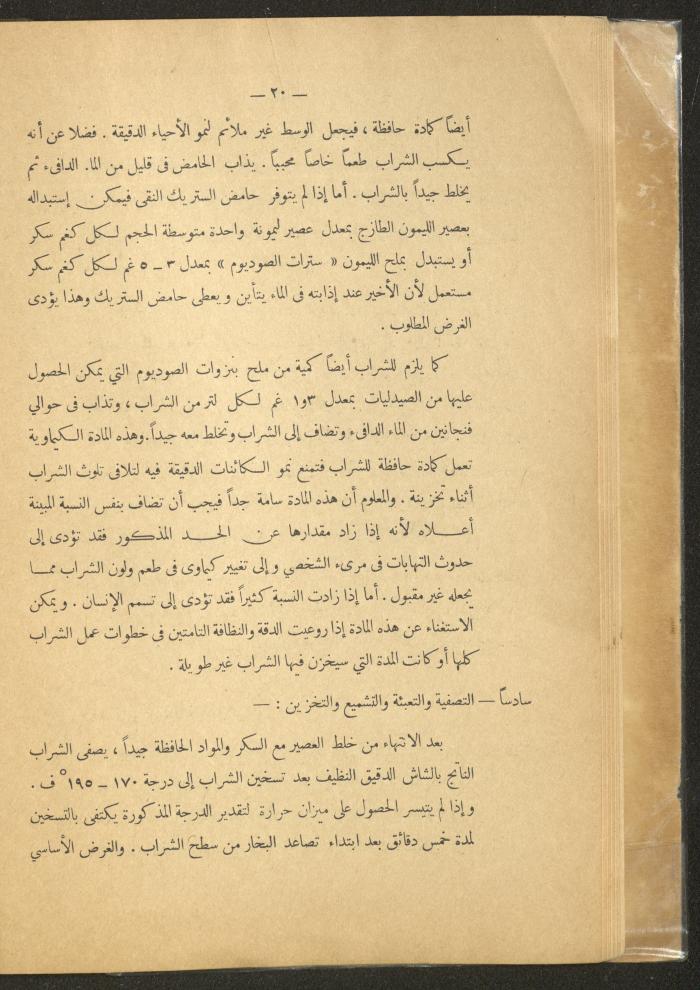 — ٢٠ —
أيضاً كمادة حافظة ، فيجعل الوسط غير ملائم لنمو الأحياء الدقيقة . فضلا عن أنه
يكسب الشراب طعماً خاصاً محبباً . يذاب الحامض فى قليل من الماء الدافىء ثم
يخلط جيداً بالشراب . أما إذا لم يتوفر حامض الستريك النقى فيمكن إستبداله
بعصير الليمون الطازج بمعدل عصير ليمونة واحدة متوسطة الحجم لكل كغم سكر
أو يستبدل بملح الليمون « سترات الصوديوم » بمعدل ٣ – ٥ غم لكل كغم سكر
مستعمل لأن الأخير عند إذابته فى الماء يتأين ويعطى حامض الستريك وهذا يؤدى
الغرض المطلوب .
كما يلزم للشراب أيضاً كمية من ملح بنزوات الصوديوم التي يمكن الحصول
عليها من الصيدليات بمعدل ١٫٣ غم لكل لتر من الشراب ، وتذاب فى حوالي
فنجانين من الماء الدافىء وتضاف إلى الشراب وتخلط معه جيداً.وهذه المادة الكيماوية
تعمل كمادة حافظة للشراب فتمنع نمو الكائنات الدقيقة فيه لتلافى تلوث الشراب
أثناء تخزينة . والمعلوم أن هذه المادة سامة جداً فيجب أن تضاف بنفس النسبة المبينة
أعلاه لأنه إذا زاد مقدارها عن الحد المذكور فقد تؤدى إلى
حدوث التهابات فى مرىء الشخص وإلى تغيير كيماوى فى طعم ولون الشراب مما
يجعله غير مقبول . أما إذا زادت النسبة كثيراً فقد تؤدى إلى تسمم الإنسان . ويمكن
الاستغناء عن هذه المادة إذا روعيت الدقة والنظافة التامتين فى خطوات عمل الشراب
كلها أو كانت المدة التي سيخزن فيها الشراب غير طويلة .
سادساً — التصفية والتعبئة والتشميع والتخزين : —
بعد الانتهاء من خلط العصير مع السكر والمواد الحافظة جيداً ، يصفى الشراب
الناتج بالشاش الدقيق النظيف بعد تسخين الشراب إلى درجة ١٧٠ – ١٩٥° ف .
وإذا لم يتيسر الحصول على ميزان حرارة لتقدير الدرجة المذكورة يكتفى بالتسخين
لمدة خمس دقائق بعد ابتداء تصاعد البخار من سطح الشراب . والغرض الأساسي